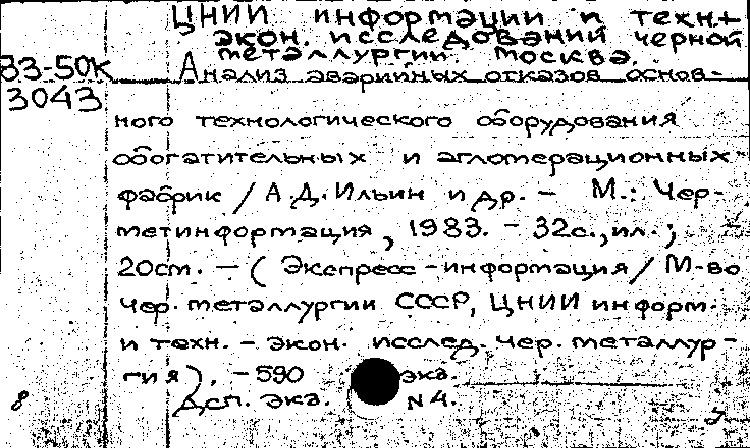 ЦНИИ информации и техн.+
экон. исследований черной
металлургии. Москва.
83-50К Анализ аварийных отказов основ-
3043
ного технологического оборудования
обогатительных и агломерационных
фабрик / А.Д. Ильин и др. - М.: Чер-
метинформация, 1983. - 32с., ил.;
20см. - (Экспресс-информация / М-во
чер. металлургии СССР, ЦНИИ информ.
и техн. - экон. исслед. чер. металлур-
гии). - 590 экз.
8 Дсп. экз. N4.